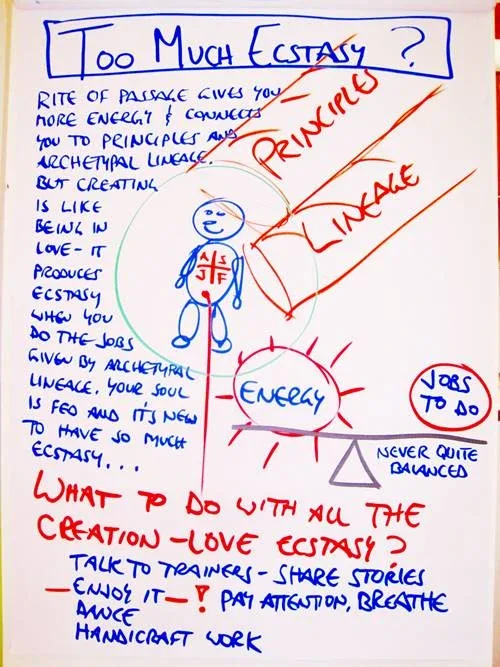 TOO MUCH ECSTASY ?
RITE OF PASSAGE GIVES YOU
MORE ENERGY & CONNECTS
YOU TO PRINCIPLES AND
ARCHETYPAL LINEAGE.
BUT CREATING
IS LIKE
BEING IN
LOVE - IT
PRODUCES
ECSTASY
WHEN YOU
DO THE JOBS
GIVEN BY ARCHETYPAL
LINEAGE. YOUR SOUL
IS FED AND IT'S NEW
TO HAVE SO MUCH
ECSTASY...
PRINCIPLES
LINEAGE
A S
J F
ENERGY
JOBS
TO DO
NEVER QUITE
BALANCED
WHAT TO DO WITH ALL THE
CREATION - LOVE ECSTASY?
TALK TO TRAINERS - SHARE STORIES
— ENJOY IT — ! PAY ATTENTION, BREATHE
DANCE
HANDICRAFT WORK